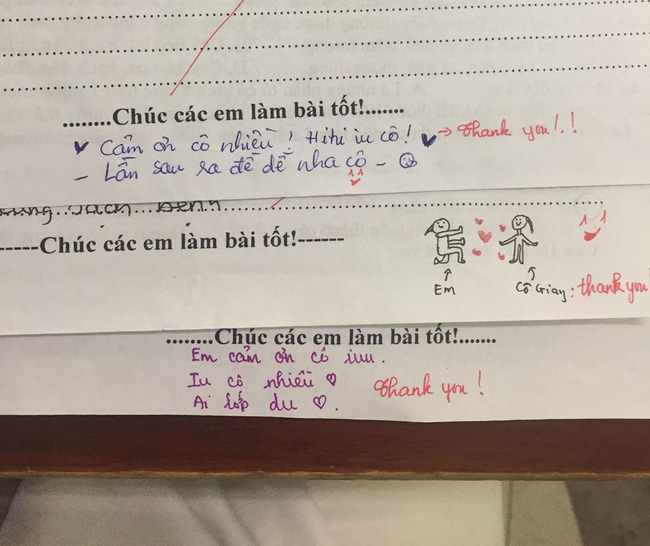 .........Chúc các em làm bài tốt!.......
Cảm ơn cô nhiều! Hihi iu cô! → Thank you!.!
- Lần sau ra đề dễ nha cô -
-----Chúc các em làm bài tốt!------
Em
Cô Giay: thank you!
........Chúc các em làm bài tốt!.......
Em cảm ơn cô iuu.
Iu cô nhiều ♡ Thank you!
Ai lốp du ♡.